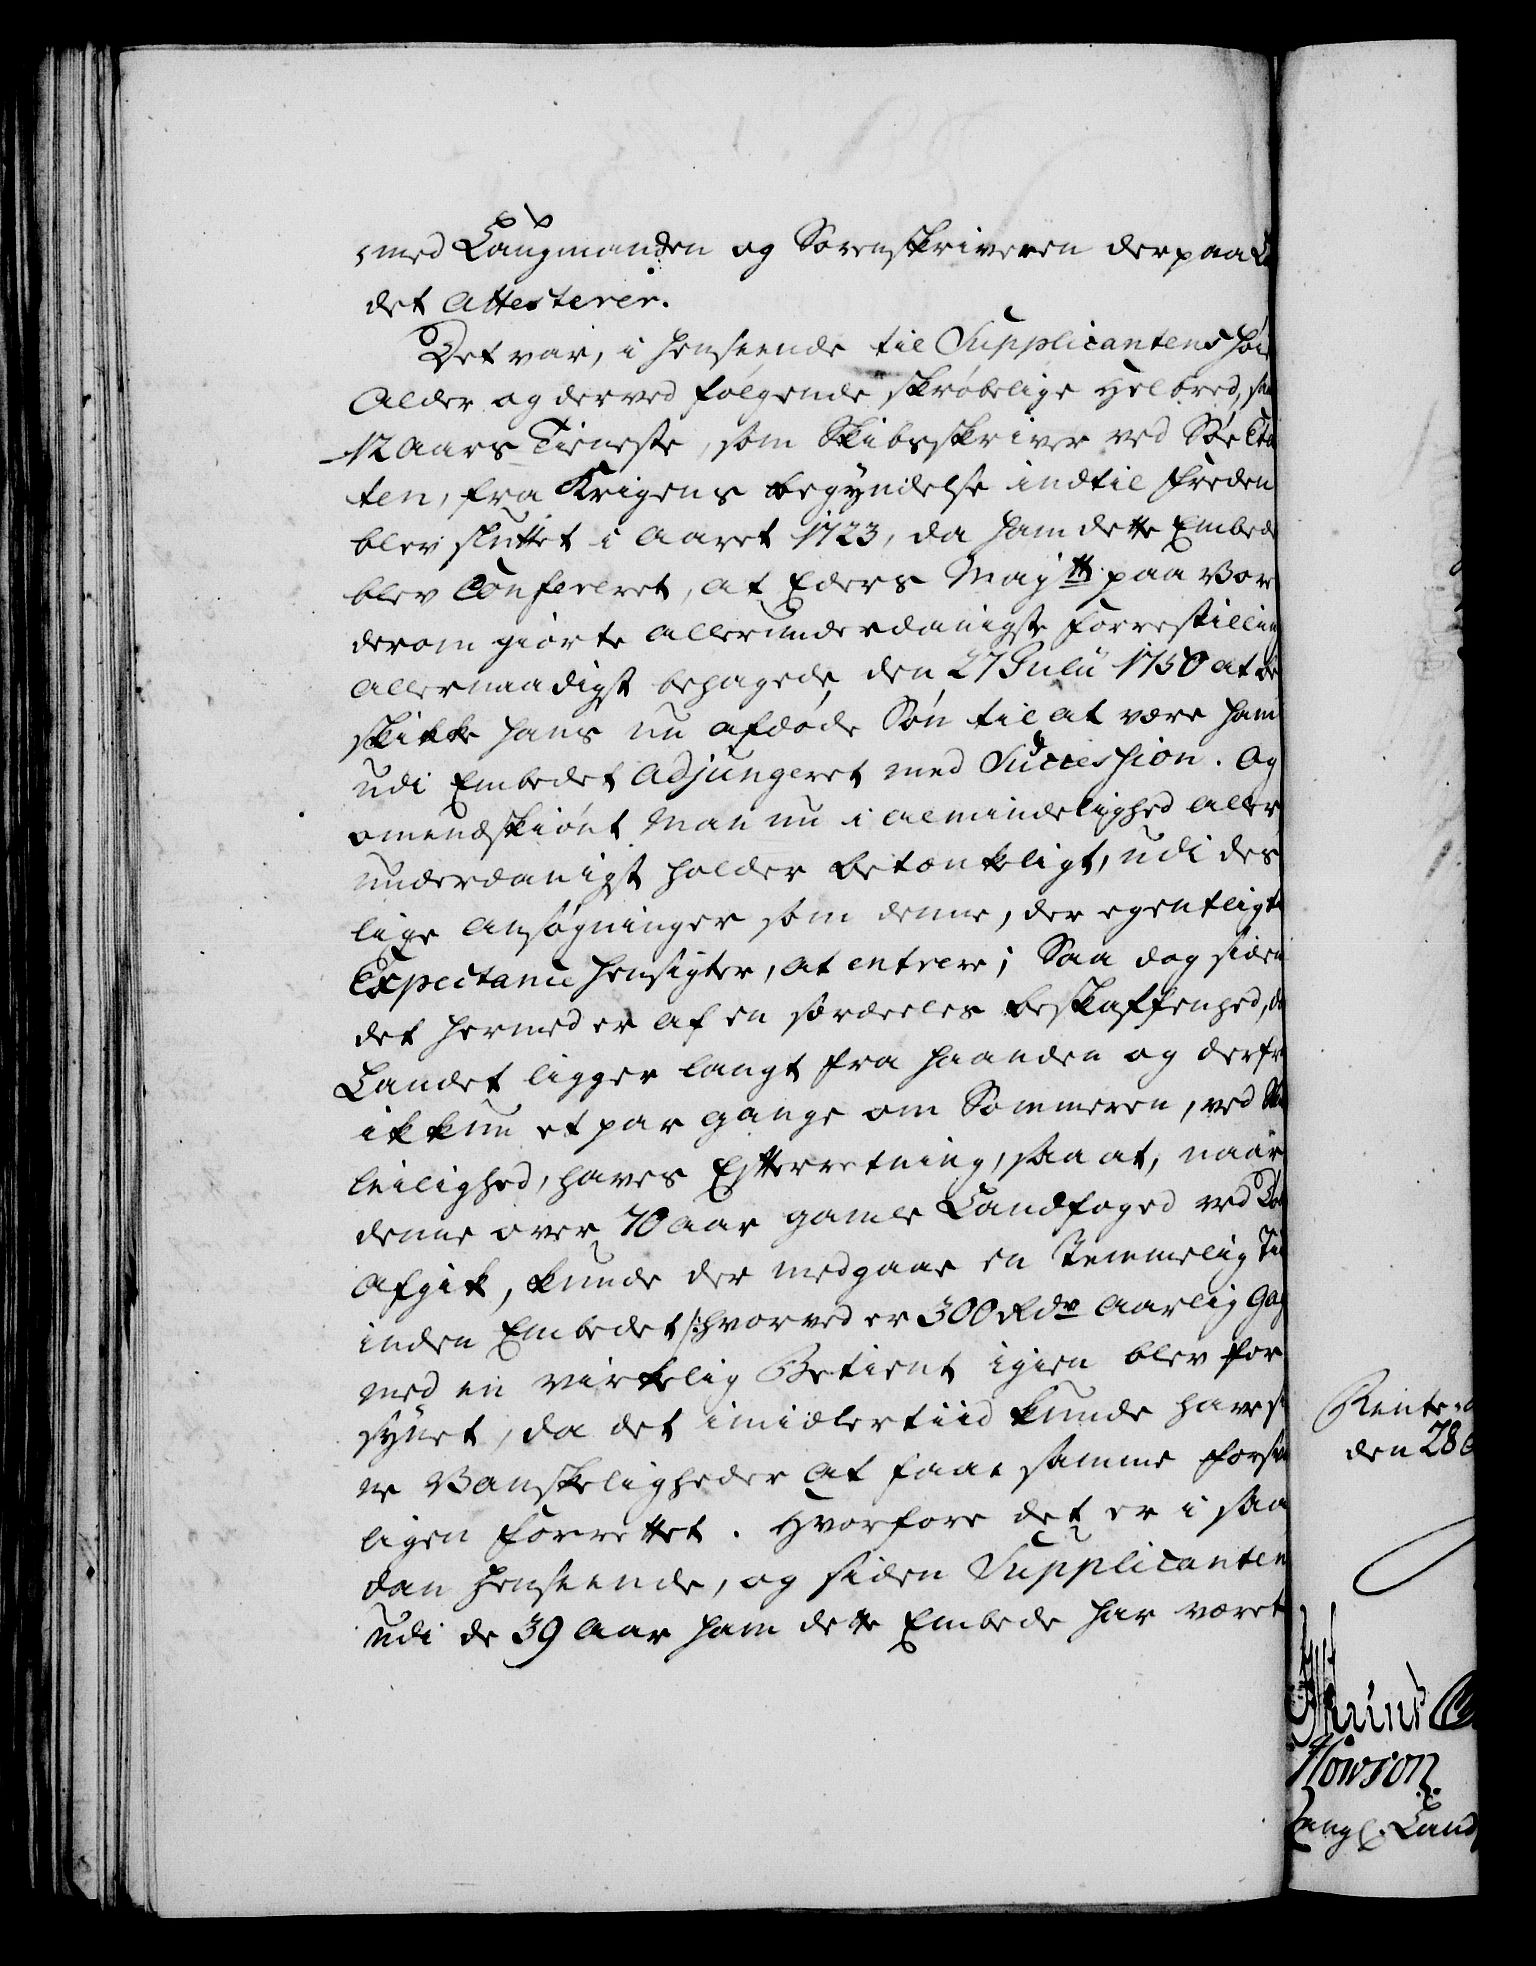 med Laugmanden og Sorenskriveren derpaa La
det attesterer.
Det var, i henseende til Supplicantens høie
Alder og derved følgende skrøbelige Helbred, sa
12 Aars Tieneste, som Skibsskriver ved Søe Eta
ten, fra Krigens begyndelse indtil freden
blev sluttet i Aaret 1723, da ham dette Embede
blev Confereret, at Eders Maj.tt paa Vor
derom giorte allerunderdanigste forrestilling
allernaadigst behagede den 27 Julii 1750 at be
skikke hans nu afdøde Søn til at være ham
udi Embedet adjungeret med Succession. Og
omendskiønt Man nu i almindelighed aller
underdanigst holder betænkeligt, udi des
lige Ansøgninger som denne, der egentligt
Expectance hensigter, at entrere; Saa dog siden
det hermed er af en særdeeles beskaffenhed, da
Landet ligger langt fra haanden og derfra
ikkun et par gange om Sommeren, ved
leilighed, haves Efterretning, saa at, naar
denne over 70 Aar gamle Landfoged ved Dø
afgik, kunde der medgaae en temmelig Tid
inden Embedet /: hvorved er 300 Rdr Aarlig Gag
med en virkelig Betient igien blev for
synet, da det imidlertiid kunde have si
ne Vanskeligheder at faae samme forsva
ligen forrettet. Hvorfore det er i saa
dan henseende, og siden Supplicanten
udi de 39 Aar ham dette Embede har været
Rente
den 28
Howson.
Land